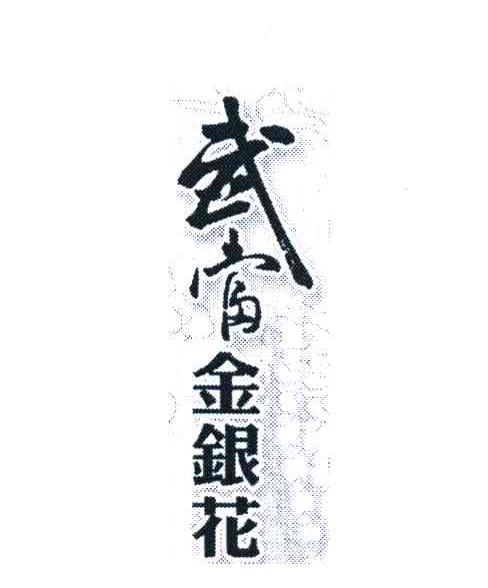 武當金銀花